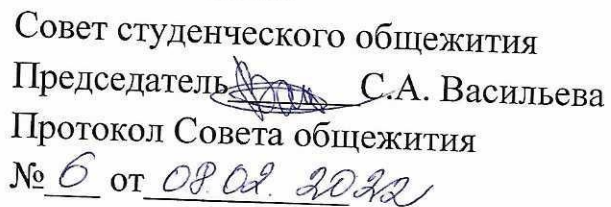 Совет студенческого общежития
Председатель С.А. Васильева
Протокол Совета общежития
№ 6 от 08.02.2022